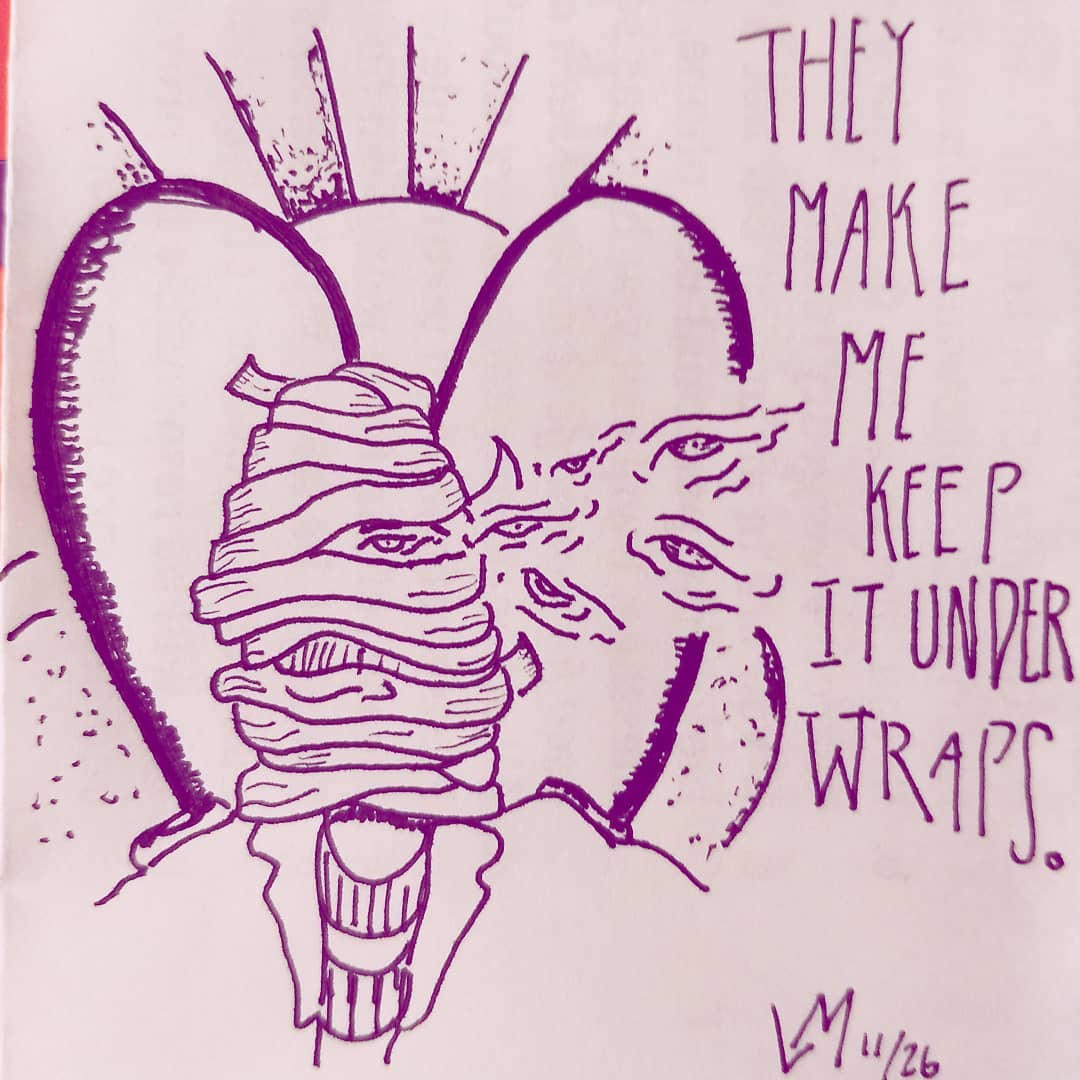 THEY
MAKE
ME
KEEP
IT UNDER
WRAPS.
LM 11/26